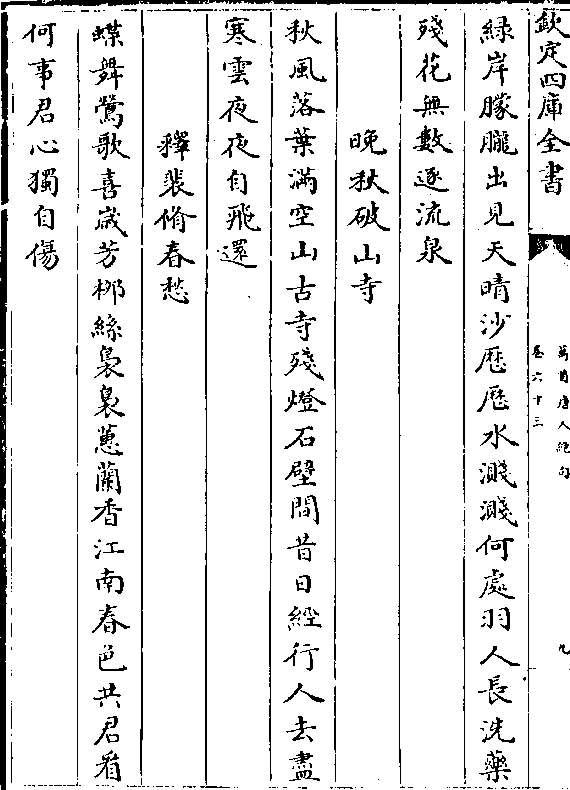 欽定四庫全書
萬首唐人絶句
卷六十三
九
緑岸朦朧出見天晴沙厯厯水濺濺何處羽人長洗藥
殘花無數逐流泉
晚秋破山寺
秋風落葉滿空山古寺殘燈石壁間昔日經行人去盡
寒雲夜夜自飛還
釋裴脩春愁
蝶舞鶯歌喜嵗芳桞絲裊裊蕙蘭香江南春色共君看
何事君心獨自傷